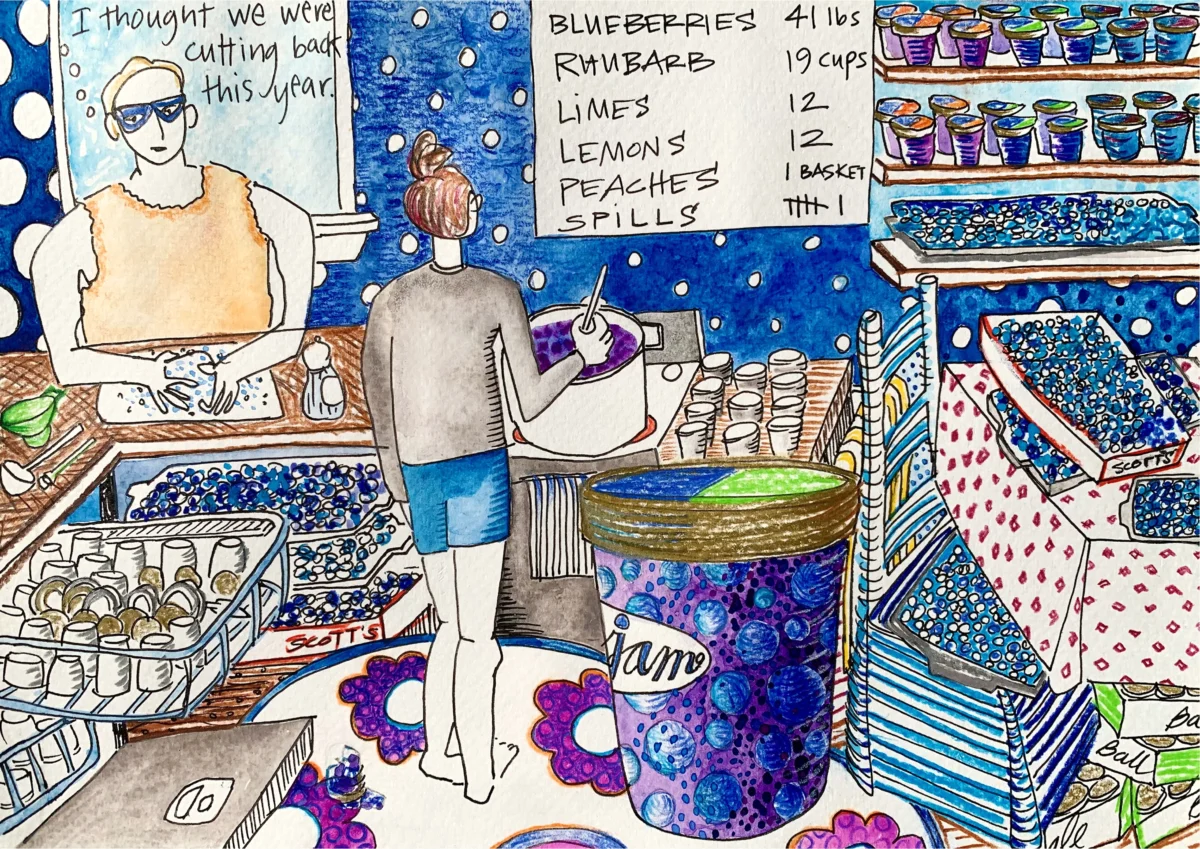 I thought we were
cutting back
this year.
BLUEBERRIES 41 lbs
RHUBARB 19 cups
LIMES 12
LEMONS 12
PEACHES 1 BASKET
SPILLS 卌 1
SCOTT'S
SCOTT'S
jam
Ball